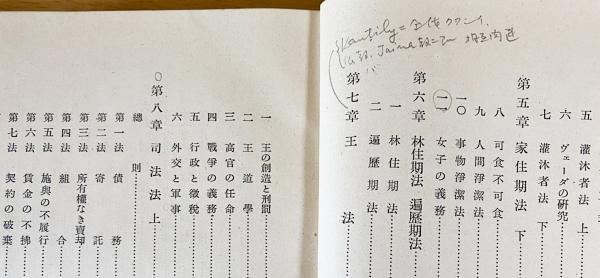 五 灌沐者法 上
六 ヴェーダの研究
七 灌沐者法 下
第五章 家住期法 下
八 可食不可食
九 人間淨潔法
一〇 事物淨潔法
一一 女子の義務
第六章 林住期法 遍歷期法
一 林住期法
二 遍歷期法
第七章 王法
一 王の創造と刑罰
二 王道學
三 高官の任命
四 戰爭の義務
五 行政と徵稅
六 外交と軍事
第八章 司法法 上
總則
第一法 債務
第二法 寄託
第三法 所有權なき賣却
第四法 組合
第五法 施與の不履行
第六法 賃金の不拂
第七法 契約の破棄